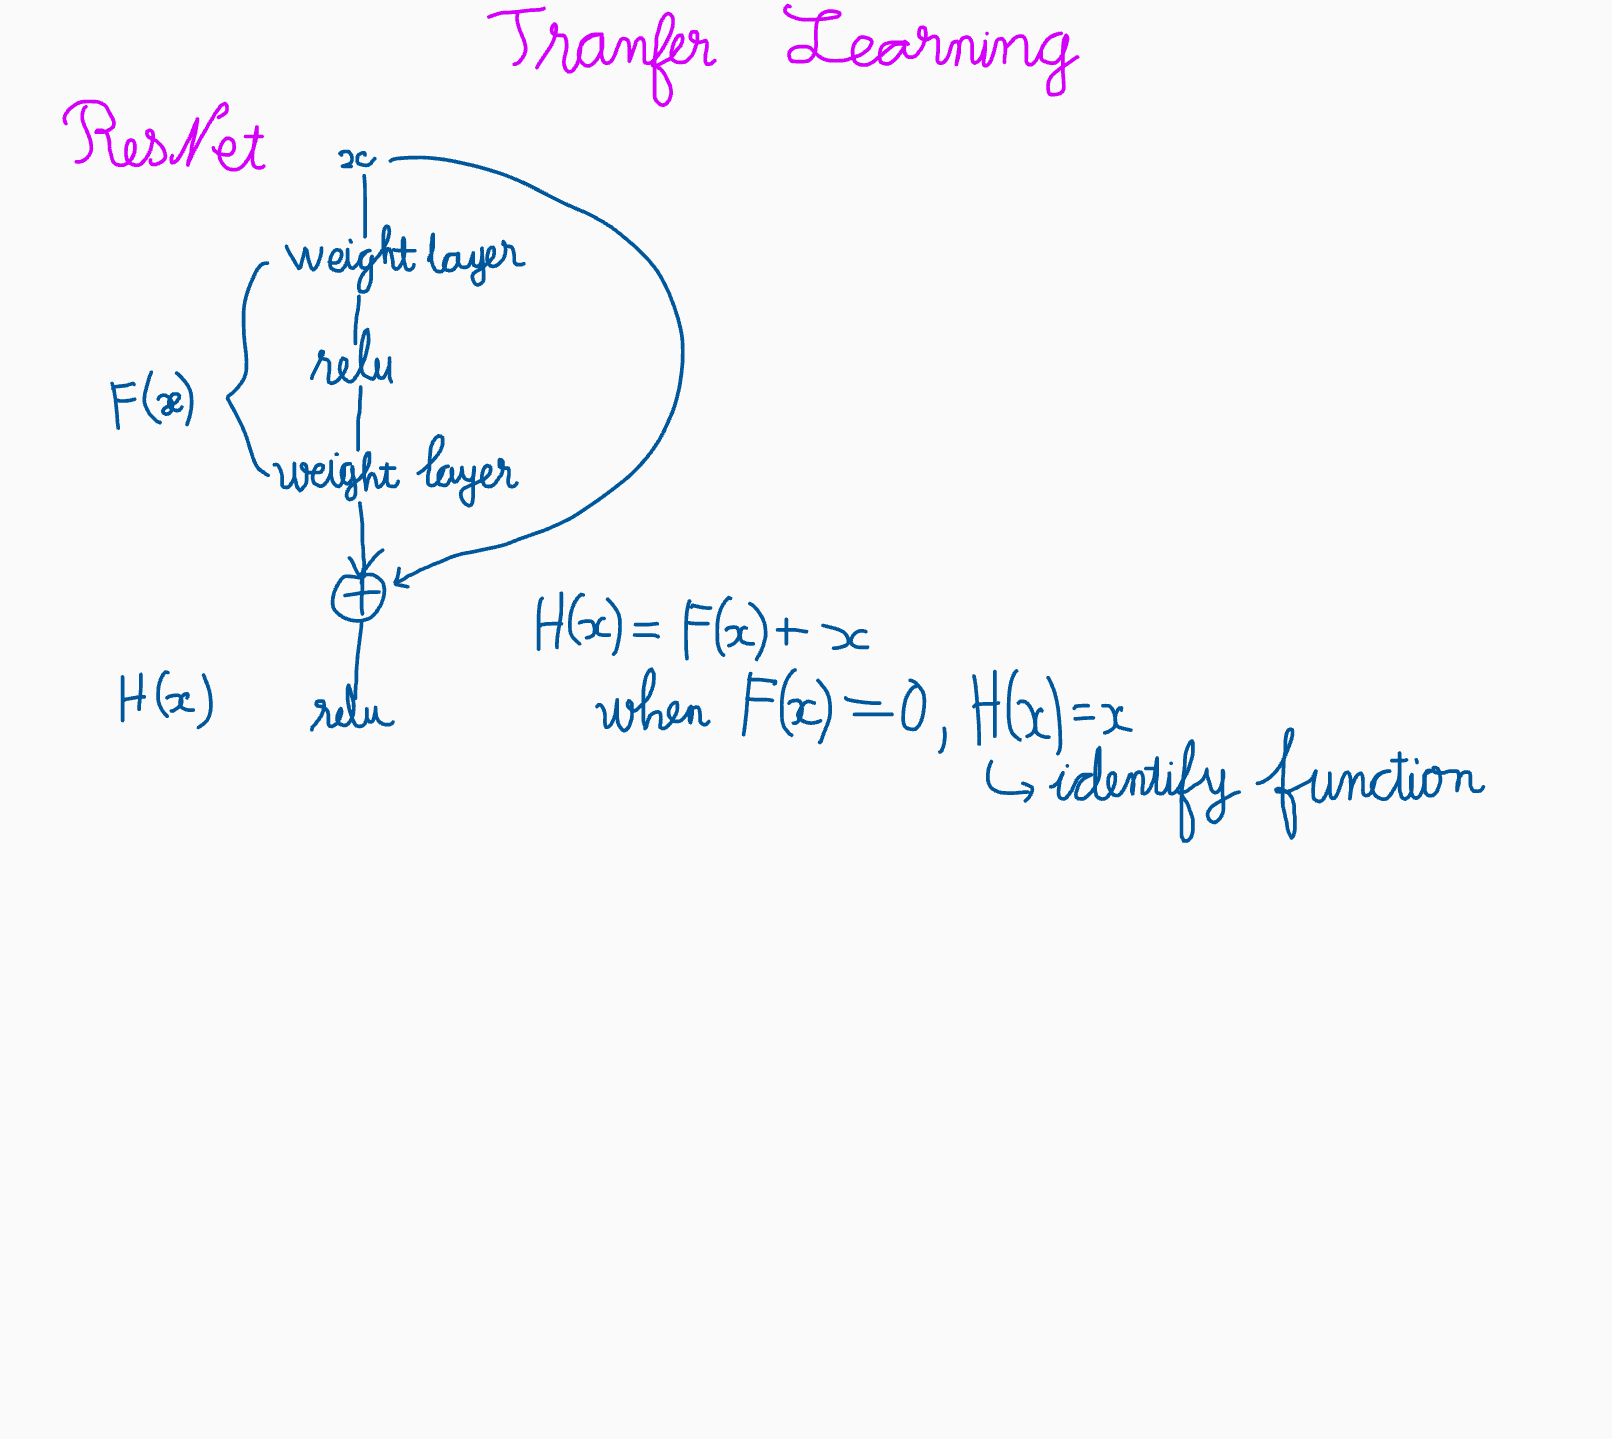 Tranfer Learning
ResNet
x
weight layer
relu
F(x)
weight layer
+
H(x) = F(x) + x
H(x) relu
when F(x) = 0, H(x) = x
↳ identify function